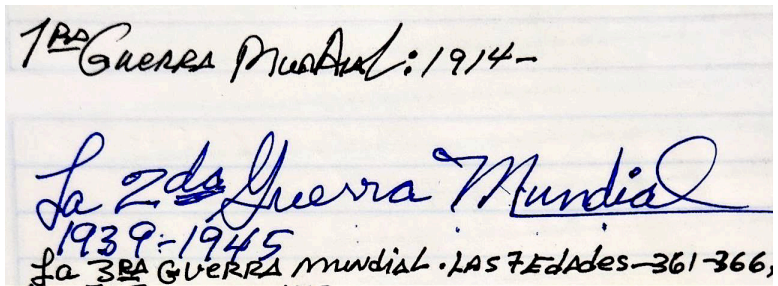 1RA Guerra Mundial: 1914-
La 2da Guerra Mundial
1939-1945
La 3RA GUERRA mundial. LAS 7 EdAdes-361-366,